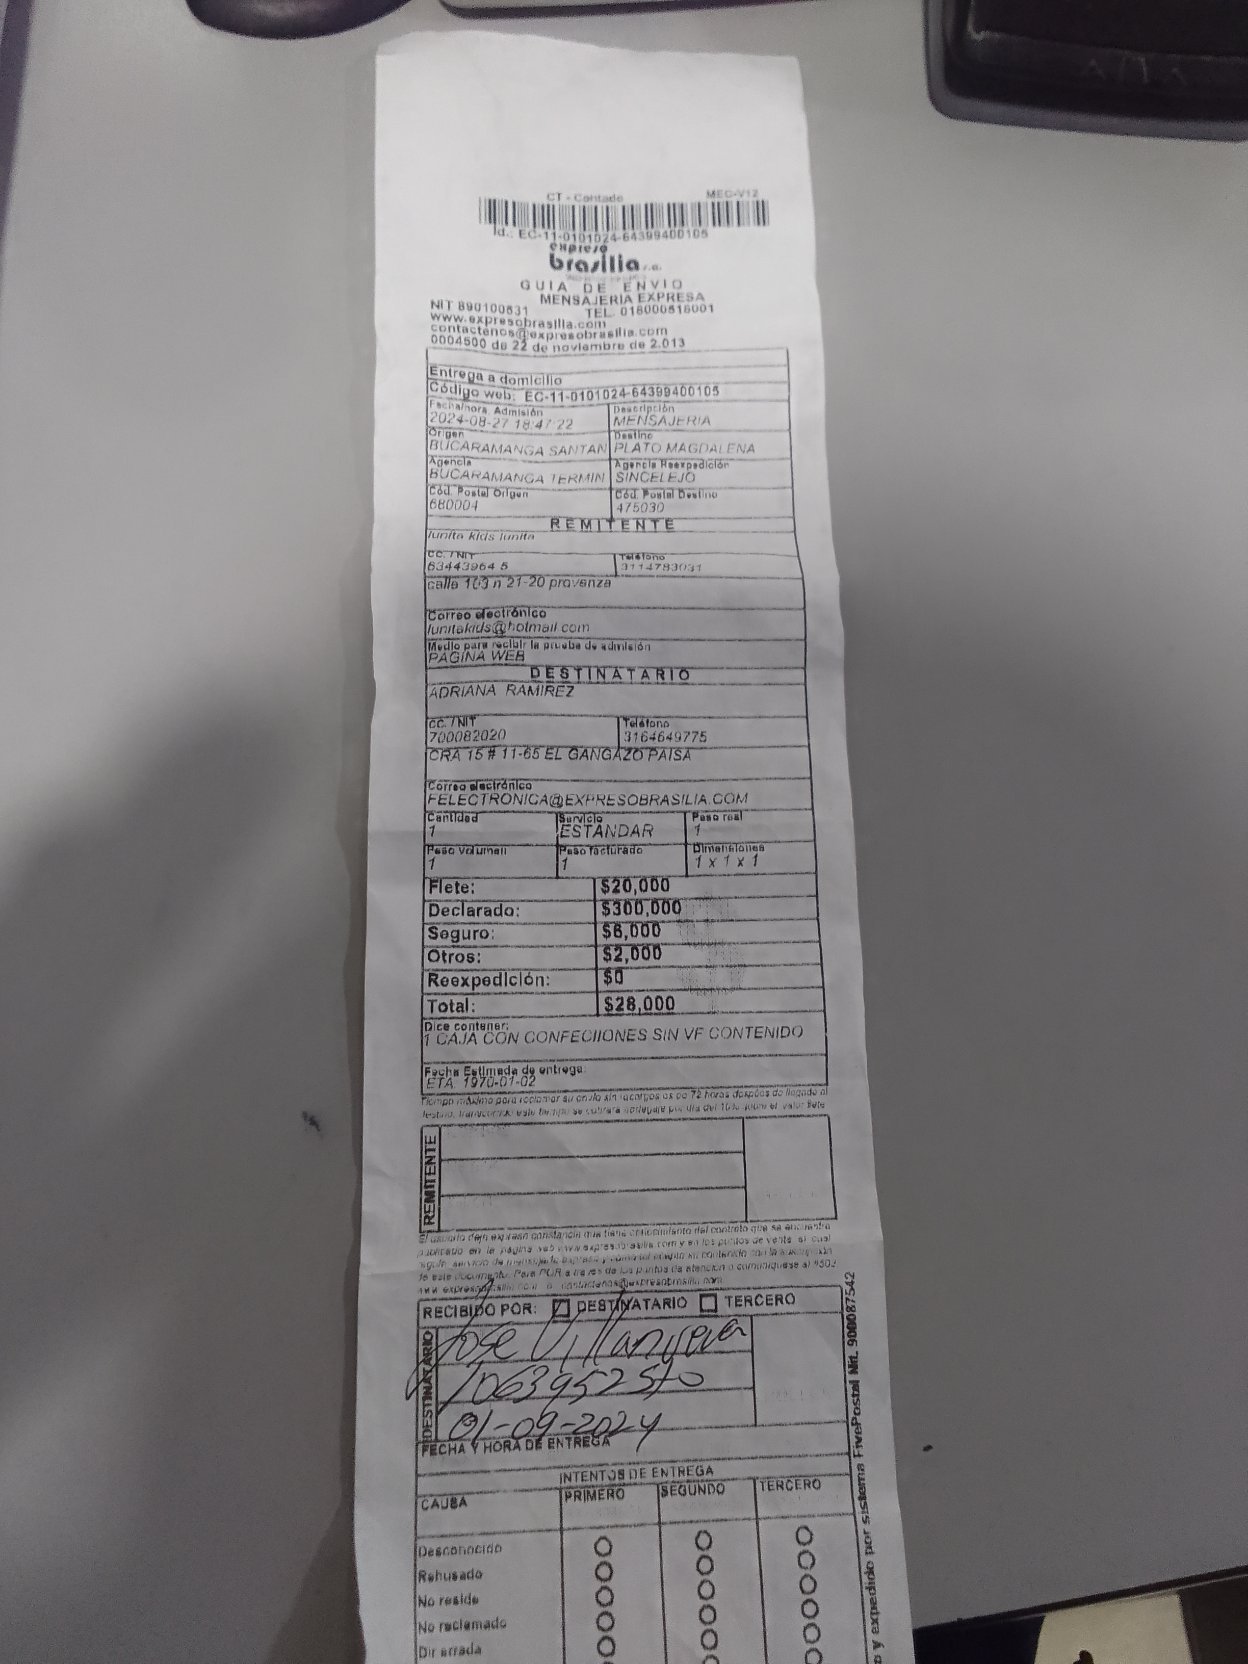 CT - Contado MEC-V12
Id.: EC-11-0101024-64399400105
expreso
brasilia s.a.
GUIA DE ENVIO
MENSAJERIA EXPRESA
NIT 890100531 TEL. 018000518001
www.expresobrasilia.com
contactenos@expresobrasilia.com
0004500 de 22 de noviembre de 2.013
Entrega a domicilio
Código web: EC-11-0101024-64399400105
Fecha/hora Admisión Descripción
2024-08-27 18:47:22 MENSAJERIA
Origen Destino
BUCARAMANGA SANTAN PLATO MAGDALENA
Agencia Agencia Reexpedición
BUCARAMANGA TERMIN SINCELEJO
Cód. Postal Origen Cód. Postal Destino
680004 475030
REMITENTE
lunita kids lunita
CC. / NIT Teléfono
63443964 5 3114783031
calle 103 n 21-20 provenza
Correo electrónico
lunitakids@hotmail.com
Medio para recibir la prueba de admisión
PAGINA WEB
DESTINATARIO
ADRIANA RAMIREZ
CC. / NIT Teléfono
700082020 3164649775
CRA 15 # 11-65 EL GANGAZO PAISA
Correo electrónico
FELECTRONICA@EXPRESOBRASILIA.COM
Cantidad Servicio Peso real
1 ESTANDAR 1
Peso volumen Peso facturado Dimensiones
1 1 1 x 1 x 1
Flete: $20,000
Declarado: $300,000
Seguro: $6,000
Otros: $2,000
Reexpedición: $0
Total: $28,000
Dice contener:
1 CAJA CON CONFECIIONES SIN VF CONTENIDO
Fecha Estimada de entrega:
ETA: 1970-01-02
Tiempo máximo para reclamar su envío sin recargos es de 72 horas después de llegado al
REMITENTE
El usuario deja expresa constancia que tiene conocimiento del contrato que se encuentra
publicado en la página web www.expresobrasilia.com y en los puntos de venta, el cual
de este documento. Para PQR a traves de los puntos de atencion o comuniquese al
www.expresobrasilia.com o contactenos@expresobrasilia.com
RECIBIDO POR: DESTINATARIO TERCERO
DESTINATARIO
Jose Villanueva
01-09-2024
FECHA Y HORA DE ENTREGA
INTENTOS DE ENTREGA
CAUSA PRIMERO SEGUNDO TERCERO
Desconocido
Rehusado
No reside
No reclamado
Dir errada
y expedido por sistema FivePostal Nit. 900087542